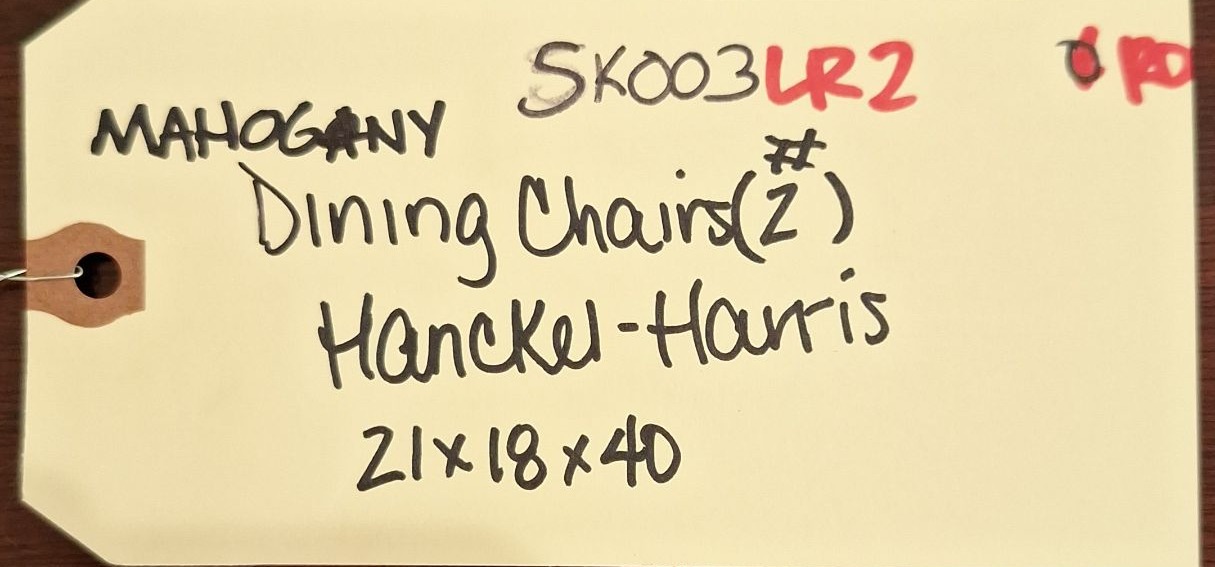 SK003LR2
MAHOGANY
#
Dining Chairs(2)
Hanckel-Harris
21x18x40